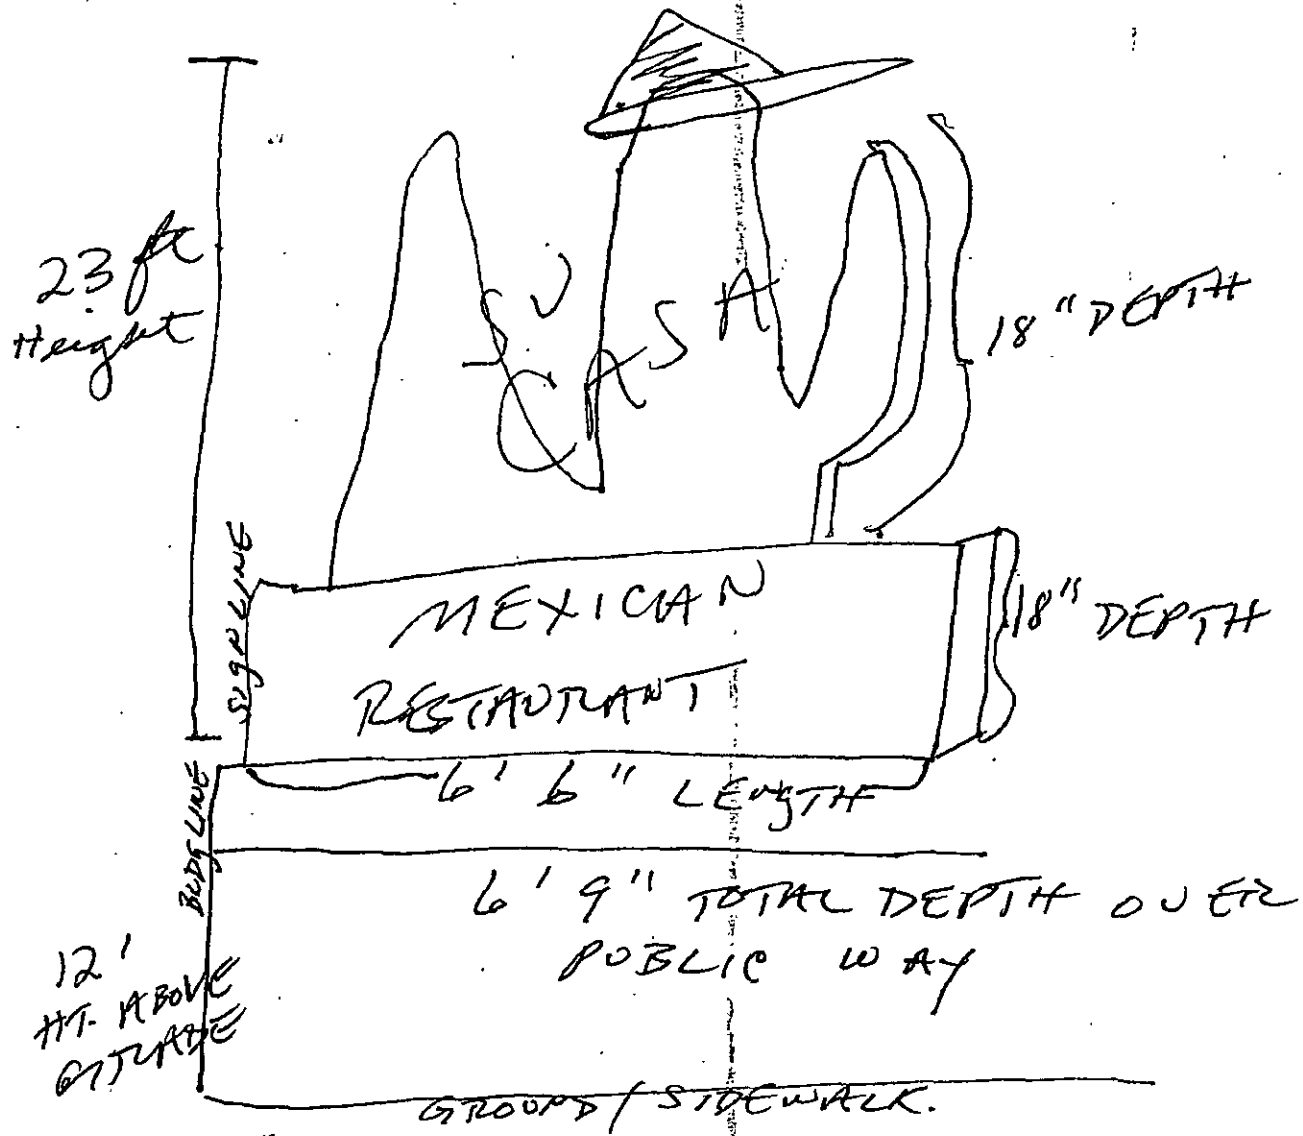 23 ft
Height
SU
CASA
18" DEPTH
SIGN LINE
MEXICAN
RESTAURANT
18" DEPTH
BLDG LINE
6' 6" LENGTH
6' 9" TOTAL DEPTH OVER
PUBLIC WAY
12'
HT. ABOVE
GRADE
GROUND / SIDEWALK.